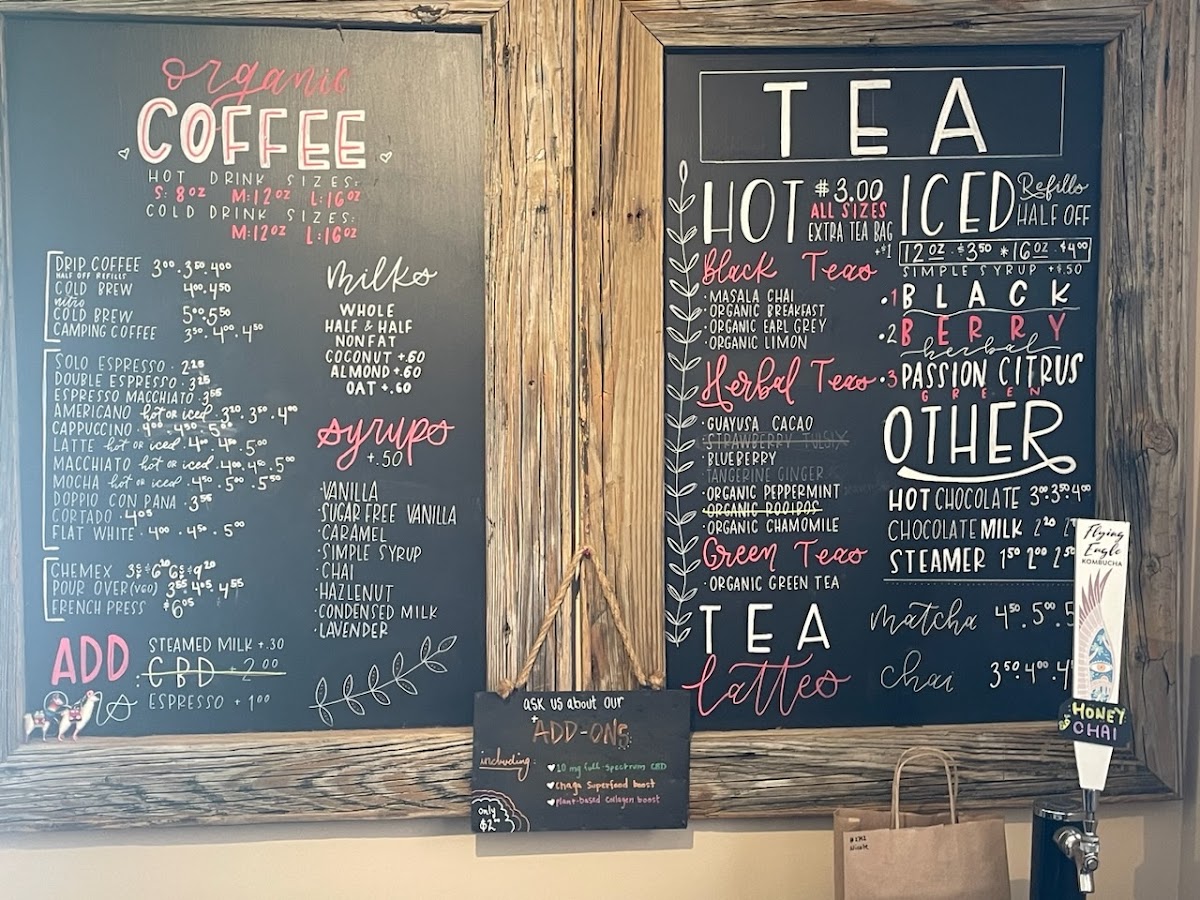 organic
COFFEE
HOT DRINK SIZES:
S: 8oz M:12oz L:16oz
COLD DRINK SIZES:
M:12oz L:16oz
DRIP COFFEE 3⁰⁰ · 3⁵⁰ · 4⁰⁰
HALF OFF REFILLS
COLD BREW 4⁰⁰ · 4⁵⁰
nitro
COLD BREW 5⁰⁰ · 5⁵⁰
CAMPING COFFEE 3⁵⁰ · 4⁰⁰ · 4⁵⁰
SOLO ESPRESSO · 2²⁵
DOUBLE ESPRESSO · 3²⁵
ESPRESSO MACCHIATO · 3⁵⁵
AMERICANO hot or iced · 3²⁰ · 3⁵⁰ · 4⁰⁰
CAPPUCCINO · 4⁰⁰ · 4⁵⁰ · 5⁰⁰
LATTE hot or iced · 4⁰⁰ · 4⁵⁰ · 5⁰⁰
MACCHIATO hot or iced · 4⁰⁰ · 4⁵⁰ · 5⁰⁰
MOCHA hot or iced · 4⁵⁰ · 5⁰⁰ · 5⁵⁰
DOPPIO CON PANA · 3⁵⁵
CORTADO · 4⁰⁵
FLAT WHITE · 4⁰⁰ · 4⁵⁰ · 5⁰⁰
CHEMEX
POUR OVER (V60) 3⁵⁵ 4⁰⁵ 4⁵⁵
FRENCH PRESS $6⁰⁵
ADD
STEAMED MILK +.30
:CBD +2.00
ESPRESSO +1⁰⁰
milks
WHOLE
HALF & HALF
NONFAT
COCONUT +.60
ALMOND +.60
OAT +.60
syrups
+.50
·VANILLA
·SUGAR FREE VANILLA
·CARAMEL
·SIMPLE SYRUP
·CHAI
·HAZLENUT
·CONDENSED MILK
·LAVENDER
ask us about our
ADD-ONS
including:
10 mg full-spectrum CBD
Chaga Superfood boost
Plant-based Collagen boost
only
$2⁰⁰
TEA
HOT $3.00
ALL SIZES
EXTRA TEA BAG
+$1
Black Teas
·MASALA CHAI
·ORGANIC BREAKFAST
·ORGANIC EARL GREY
·ORGANIC LIMON
Herbal Teas
·GUAYUSA CACAO
·STRAWBERRY TULSIX
·BLUEBERRY
·TANGERINE GINGER
·ORGANIC PEPPERMINT
·ORGANIC ROOIBOS
·ORGANIC CHAMOMILE
Green Teas
·ORGANIC GREEN TEA
TEA
lattes
ICED Refills
HALF OFF
12oz · $3⁵⁰ * 16oz · $4⁰⁰
SIMPLE SYRUP +$.50
·1 BLACK
·2 BERRY
herbal
·3 PASSION CITRUS
GREEN
OTHER
HOT CHOCOLATE 3⁰⁰ 3⁵⁰ 4⁰⁰
CHOCOLATE MILK 2²⁰
STEAMER 1⁵⁰ 2⁰⁰ 2⁵⁰
matcha 4⁵⁰ · 5⁰⁰
chai 3⁵⁰ 4⁰⁰
Flying
Eagle
KOMBUCHA
HONEY
CHAI
Nicole